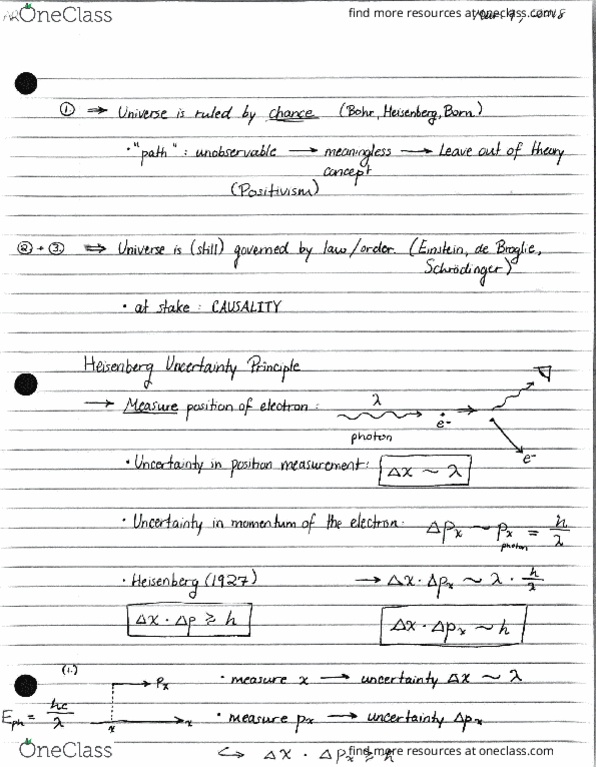 OneClass
find more resources at oneclass.com
① ⇒ Universe is ruled by chance (Bohr, Heisenberg, Born)
• "path" : unobservable → meaningless → Leave out of theory
concept
(Positivism)
② + ③ ⇒ Universe is (still) governed by law/order. (Einstein, de Broglie,
Schrödinger)
• at stake : CAUSALITY
Heisenberg Uncertainty Principle
→ Measure position of electron : λ
photon e- e-
• Uncertainty in position measurement: Δx ~ λ
• Uncertainty in momentum of the electron: Δpx ~ px photon = h/λ
• Heisenberg (1927) → Δx · Δpx ~ λ · h/λ
Δx · Δp ≥ h Δx · Δpx ~ h
(1.) Px • measure x → uncertainty Δx ~ λ
Eph = hc/λ x x • measure px → uncertainty Δpx
OneClass
↪ Δx · Δpx ≥ h
find more resources at oneclass.com